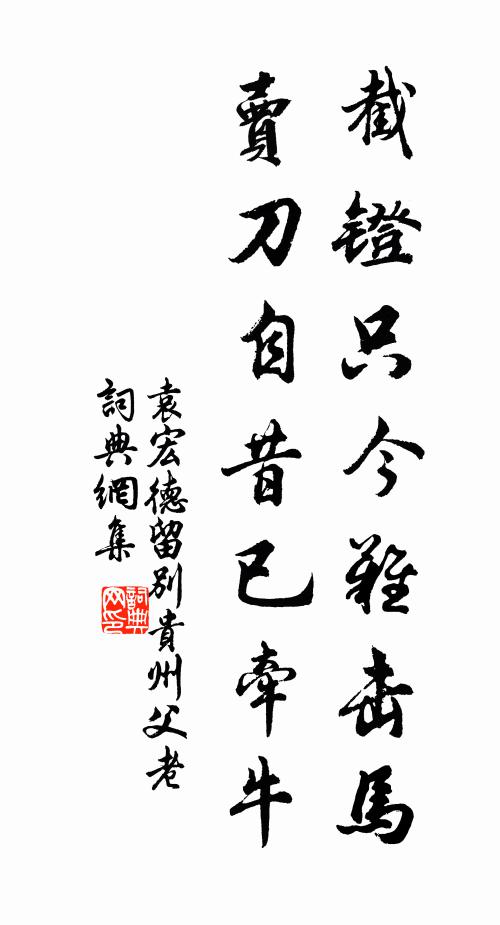 截鐙只今難去馬
賣刀自昔已牽牛
袁宏德留別貴州父老
詞典網集
詞典网印